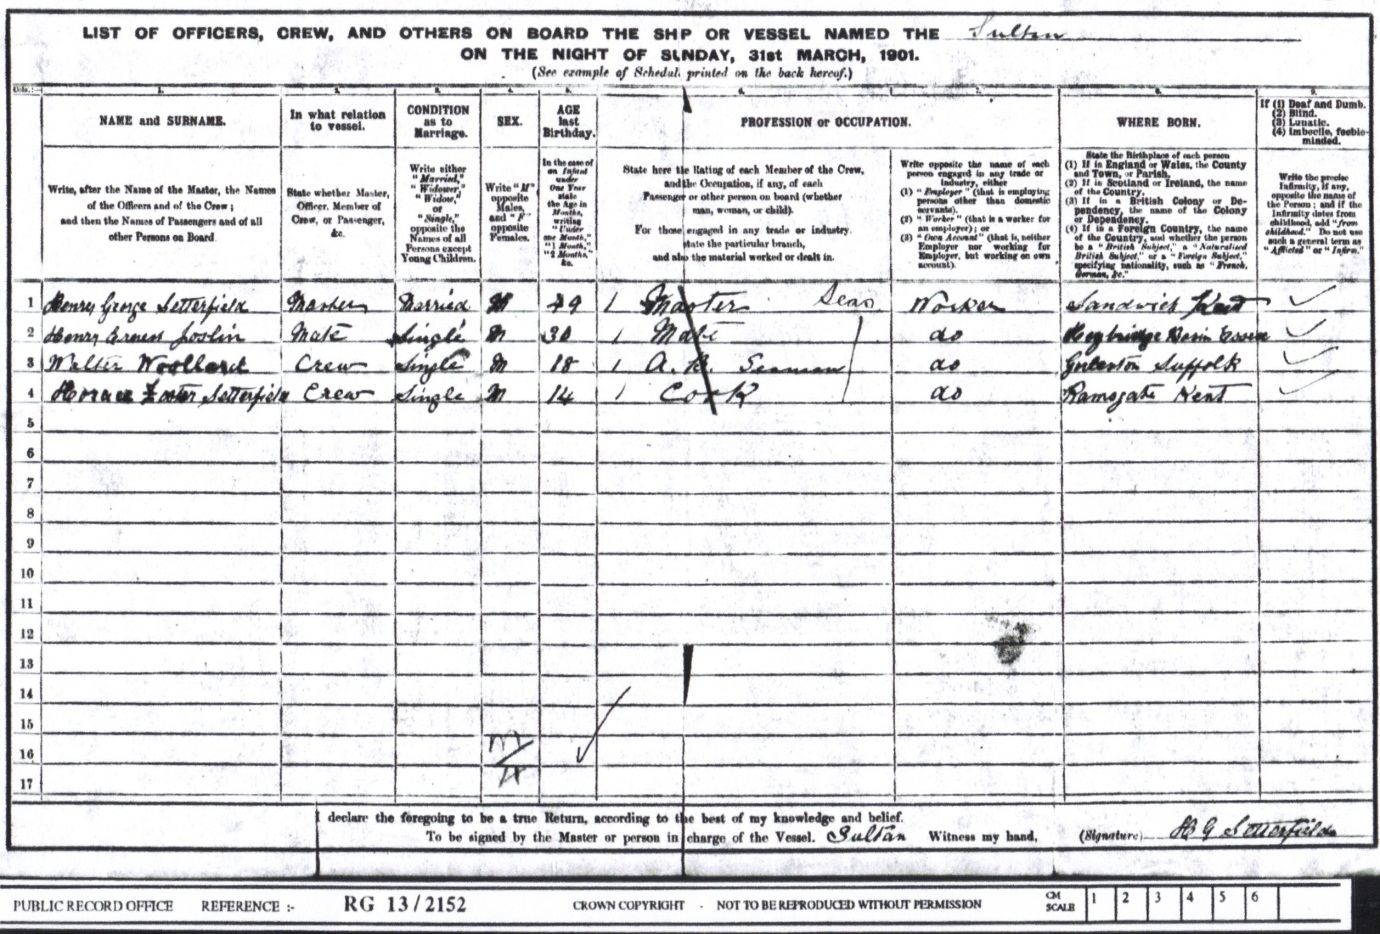 LIST OF OFFICERS, CREW, AND OTHERS ON BOARD THE SHIP OR VESSEL NAMED THE Sultan
ON THE NIGHT OF SUNDAY, 31st MARCH, 1901.
(See example of Schedule printed on the back hereof.)
1. 2. 3. 4. 5. 6. 7. 8. 9.
NAME and SURNAME.
In what relation
to vessel.
CONDITION
as to
Marriage.
SEX.
AGE
last
Birthday.
PROFESSION or OCCUPATION.
WHERE BORN.
If (1) Deaf and Dumb.
(2) Blind.
(3) Lunatic.
(4) Imbecile, feeble-
minded.
Write, after the Name of the Master, the Names
of the Officers and of the Crew;
and then the Names of Passengers and of all
other Persons on Board.
State whether Master,
Officer, Member of
Crew, or Passenger,
&c.
Write either
"Married,"
"Widower,"
"Widow,"
or
"Single,"
opposite the
Names of all
Persons except
Young Children.
Write "M"
opposite
Males,
and "F"
opposite
Females.
In the case of
an Infant
under
One Year
state
the Age in
Months,
writing
"Under
one Month,"
"1 Month,"
"2 Months,"
&c.
State here the Rating of each Member of the Crew,
and the Occupation, if any, of each
Passenger or other person on board (whether
man, woman, or child).
For those engaged in any trade or industry,
state the particular branch,
and also the material worked or dealt in.
Write opposite the name of each
person engaged in any trade or
industry, either
(1) "Employer" (that is employing
persons other than domestic
servants).
(2) "Worker" (that is a worker for
an employer); or
(3) "Own Account" (that is, neither
Employer nor working for
Employer, but working on own
account).
State the Birthplace of each person
(1) If in England or Wales, the County
and Town, or Parish.
(2) If in Scotland or Ireland, the name
of the County.
(3) If in a British Colony or De-
pendency, the name of the Colony
or Dependency.
(4) If in a Foreign Country, the name
of the Country, and whether the person
be a "British Subject," a "Naturalised
British Subject," or a "Foreign Subject,"
specifying nationality, such as "French,
German, &c."
Write the precise
Infirmity, if any,
opposite the name of
the Person; and if the
Infirmity dates from
childhood, add "from
childhood." Do not use
such a general term as
"Afflicted" or "Infirm."
1 Henry George Setterfield Master Married M 49 1 Master Seas Worker Sandwich Kent
2 Henry Ernest Joslin Mate Single M 30 1 Mate do Heybridge Basin Essex
3 Walter Woollard Crew Single M 18 1 A.B. Seaman do Gorleston Suffolk
4 Horace Foster Setterfield Crew Single M 14 1 Cook do Ramsgate Kent
5
6
7
8
9
10
11
12
13
14
15
16 M/4
17
I declare the foregoing to be a true Return, according to the best of my knowledge and belief.
To be signed by the Master or person in charge of the Vessel. Sultan Witness my hand, (Signature) H G Setterfield
PUBLIC RECORD OFFICE REFERENCE :- RG 13/2152 CROWN COPYRIGHT - NOT TO BE REPRODUCED WITHOUT PERMISSION CM SCALE 1 2 3 4 5 6